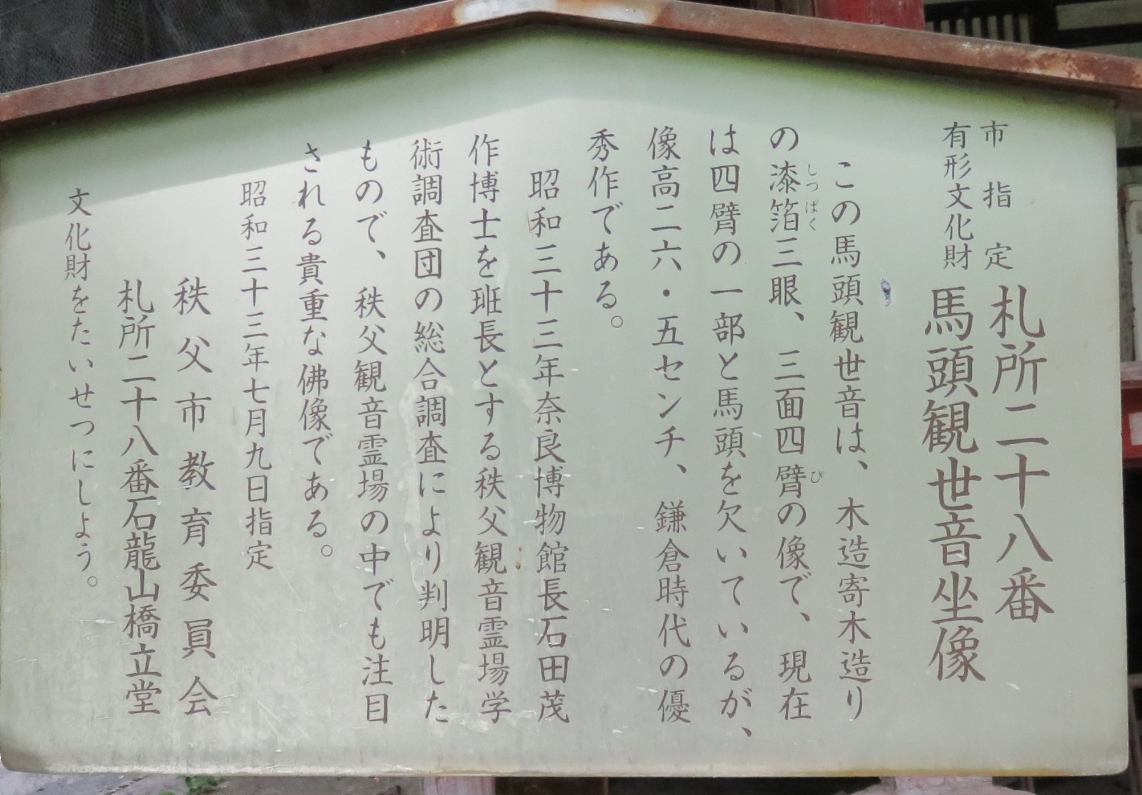 市指定
有形文化財
札所二十八番
馬頭観世音坐像
この馬頭観世音は、木造寄木造り
の漆箔三眼、三面四臂の像で、現在
しつぱく
び
は四臂の一部と馬頭を欠いているが、
像高二六・五センチ、鎌倉時代の優
秀作である。
昭和三十三年奈良博物館長石田茂
作博士を班長とする秩父観音霊場学
術調査団の総合調査により判明した
もので、秩父観音霊場の中でも注目
される貴重な佛像である。
昭和三十三年七月九日指定
秩父市教育委員会
札所二十八番石龍山橋立堂
文化財をたいせつにしよう。